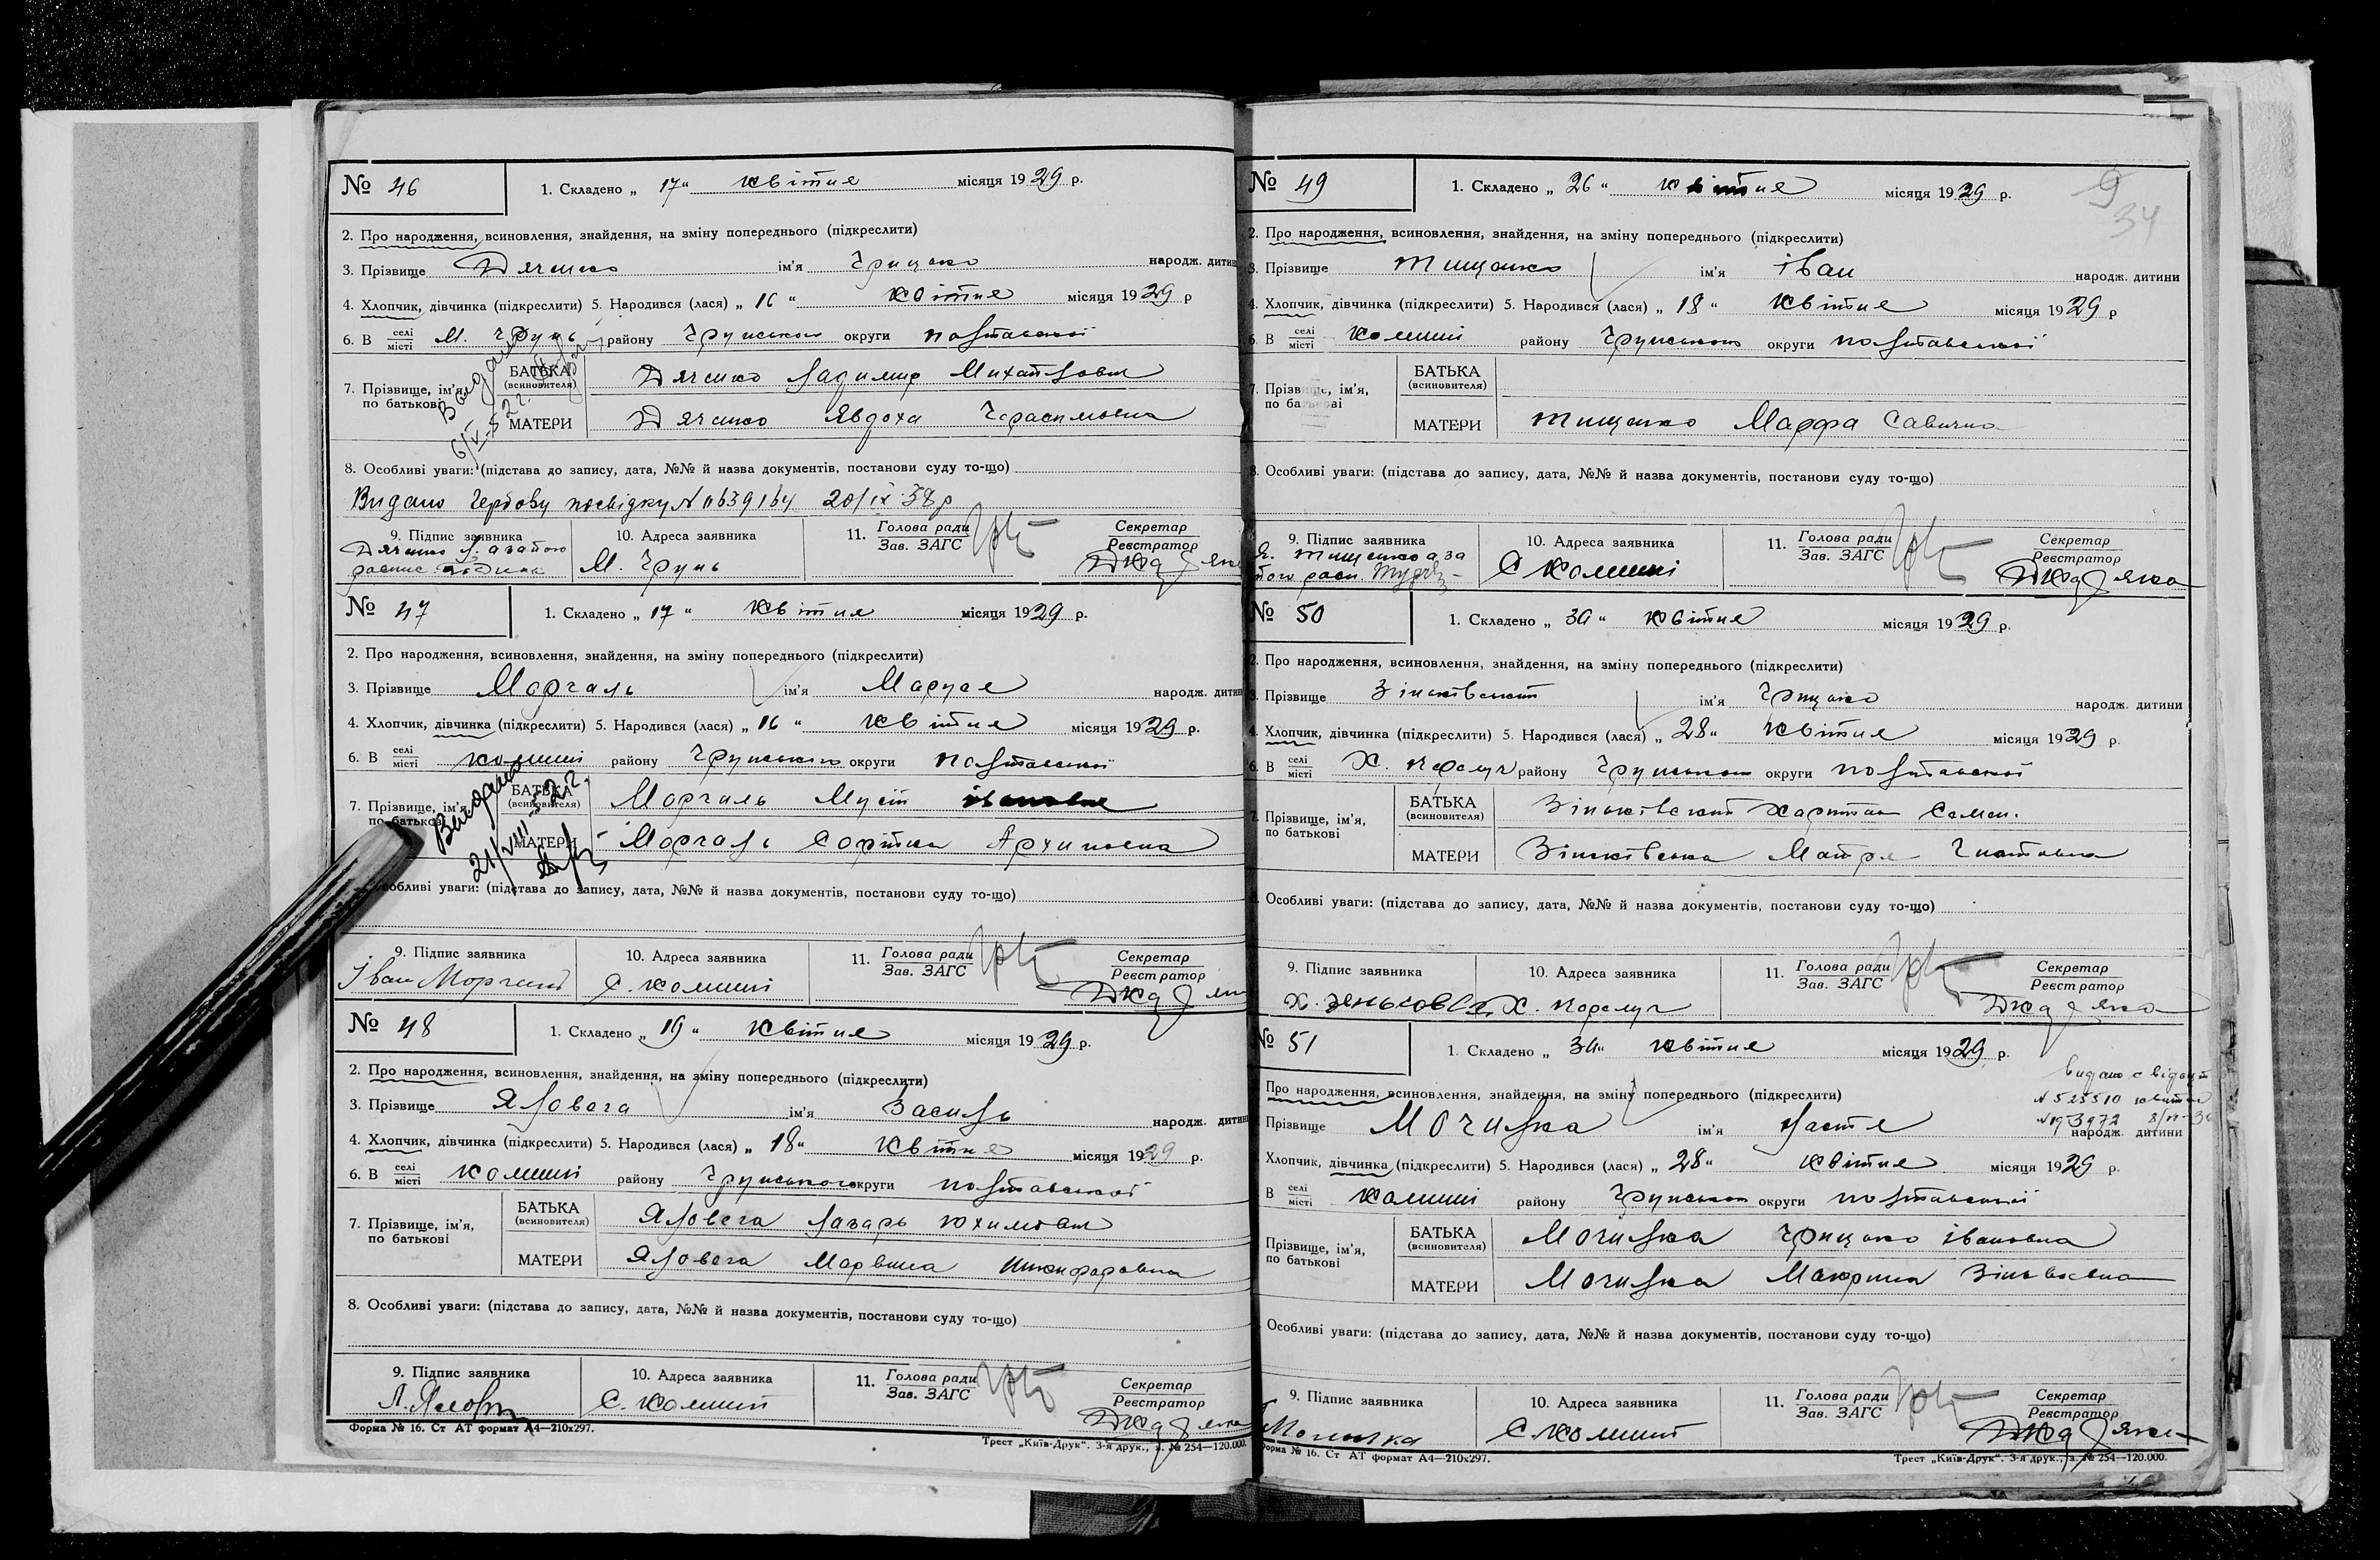 № 46
1. Складено „ 17 “ квітня місяця 1929 р.
2. Про народження, всиновлення, знайдення, на зміну попереднього (підкреслити)
3. Прізвище Дяченко ім'я Грицько народж. дитин
4. Хлопчик, дівчинка (підкреслити) 5. Народився (лася) „ 16 “ квітня місяця 1929 р
6. В селі місті М. Грунь району Грунського округи полтавської
7. Прізвище, ім'я, по батькові
БАТЬКА (всиновителя) Дяченко Михайлович
МАТЕРИ Дяченко Явдоха Герасимовна
8. Особливі уваги: (підстава до запису, дата, №№ й назва документів, постанови суду то-що)
Видано посвідку N 20/IX 38р
9. Підпис заявника Дяченко
10. Адреса заявника М. Грунь
11. Голова ради Зав. ЗАГС
Секретар Реєстратор
№ 47
1. Складено „ 17 “ квітня місяця 1929 р.
2. Про народження, всиновлення, знайдення, на зміну попереднього (підкреслити)
3. Прізвище Моргаль ім'я Маруся народж. дитин
4. Хлопчик, дівчинка (підкреслити) 5. Народився (лася) „ 16 “ квітня місяця 1929 р.
6. В селі місті комиші району Грунського округи полтавської
7. Прізвище, ім'я, по батькові
Видано
БАТЬКА (всиновителя) Моргаль
МАТЕРИ Моргаль Архиповна
Особливі уваги: (підстава до запису, дата, №№ й назва документів, постанови суду то-що)
9. Підпис заявника Іван
10. Адреса заявника С. комиші
11. Голова ради Зав. ЗАГС
Секретар Реєстратор
№ 48
1. Складено „ 19 “ квітня місяця 1929 р.
2. Про народження, всиновлення, знайдення, на зміну попереднього (підкреслити)
3. Прізвище Яловега ім'я Василь народж. дитин
4. Хлопчик, дівчинка (підкреслити) 5. Народився (лася) „ 18 “ квітня місяця 1929 р.
6. В селі місті комиші району Грунського округи полтавської
7. Прізвище, ім'я, по батькові
БАТЬКА (всиновителя) Яловега Лазарь юхимович
МАТЕРИ Яловега Никифоровна
8. Особливі уваги: (підстава до запису, дата, №№ й назва документів, постанови суду то-що)
9. Підпис заявника
10. Адреса заявника С. комиші
11. Голова ради Зав. ЗАГС
Секретар Реєстратор
Форма № 16. Ст АТ формат А4—210х297.
Трест „Київ-Друк“. 3-я друк., з. № 254—120.000.
9
34
№ 49
1. Складено „ 26 “ квітня місяця 1929 р.
2. Про народження, всиновлення, знайдення, на зміну попереднього (підкреслити)
3. Прізвище Тищенко ім'я іван народж. дитини
4. Хлопчик, дівчинка (підкреслити) 5. Народився (лася) „ 18 “ квітня місяця 1929 р
6. В селі місті комиші району Грунського округи полтавської
7. Прізвище, ім'я, по батькові
БАТЬКА (всиновителя)
МАТЕРИ Тищенко Марфа Савична
8. Особливі уваги: (підстава до запису, дата, №№ й назва документів, постанови суду то-що)
9. Підпис заявника Тищенко
10. Адреса заявника С комиші
11. Голова ради Зав. ЗАГС
Секретар Реєстратор
№ 50
1. Складено „ 30 “ квітня місяця 1929 р.
2. Про народження, всиновлення, знайдення, на зміну попереднього (підкреслити)
3. Прізвище Зіньківський ім'я Грицько народж. дитини
4. Хлопчик, дівчинка (підкреслити) 5. Народився (лася) „ 28 “ квітня місяця 1929 р.
6. В селі місті Х. району Грунського округи полтавської
7. Прізвище, ім'я, по батькові
БАТЬКА (всиновителя) Зіньківський Харитон Семен.
МАТЕРИ Зіньківська Мотря
Особливі уваги: (підстава до запису, дата, №№ й назва документів, постанови суду то-що)
9. Підпис заявника
10. Адреса заявника Х.
11. Голова ради Зав. ЗАГС
Секретар Реєстратор
№ 51
1. Складено „ 30 “ квітня місяця 1929 р.
Про народження, всиновлення, знайдення, на зміну попереднього (підкреслити)
Прізвище Могилка ім'я Настя народж. дитини
Хлопчик, дівчинка (підкреслити) 5. Народився (лася) „ 28 “ квітня місяця 1929 р.
В селі місті комиші району Грунського округи полтавської
Прізвище, ім'я, по батькові
БАТЬКА (всиновителя) Могилка Грицько івановна
МАТЕРИ Могилка Макрина
Особливі уваги: (підстава до запису, дата, №№ й назва документів, постанови суду то-що)
9. Підпис заявника Могилка
10. Адреса заявника С. комиші
11. Голова ради Зав. ЗАГС
Секретар Реєстратор
орма № 16. Ст АТ формат А4—210х297.
Трест „Київ-Друк“. 3-я друк., з. № 254—120.000.